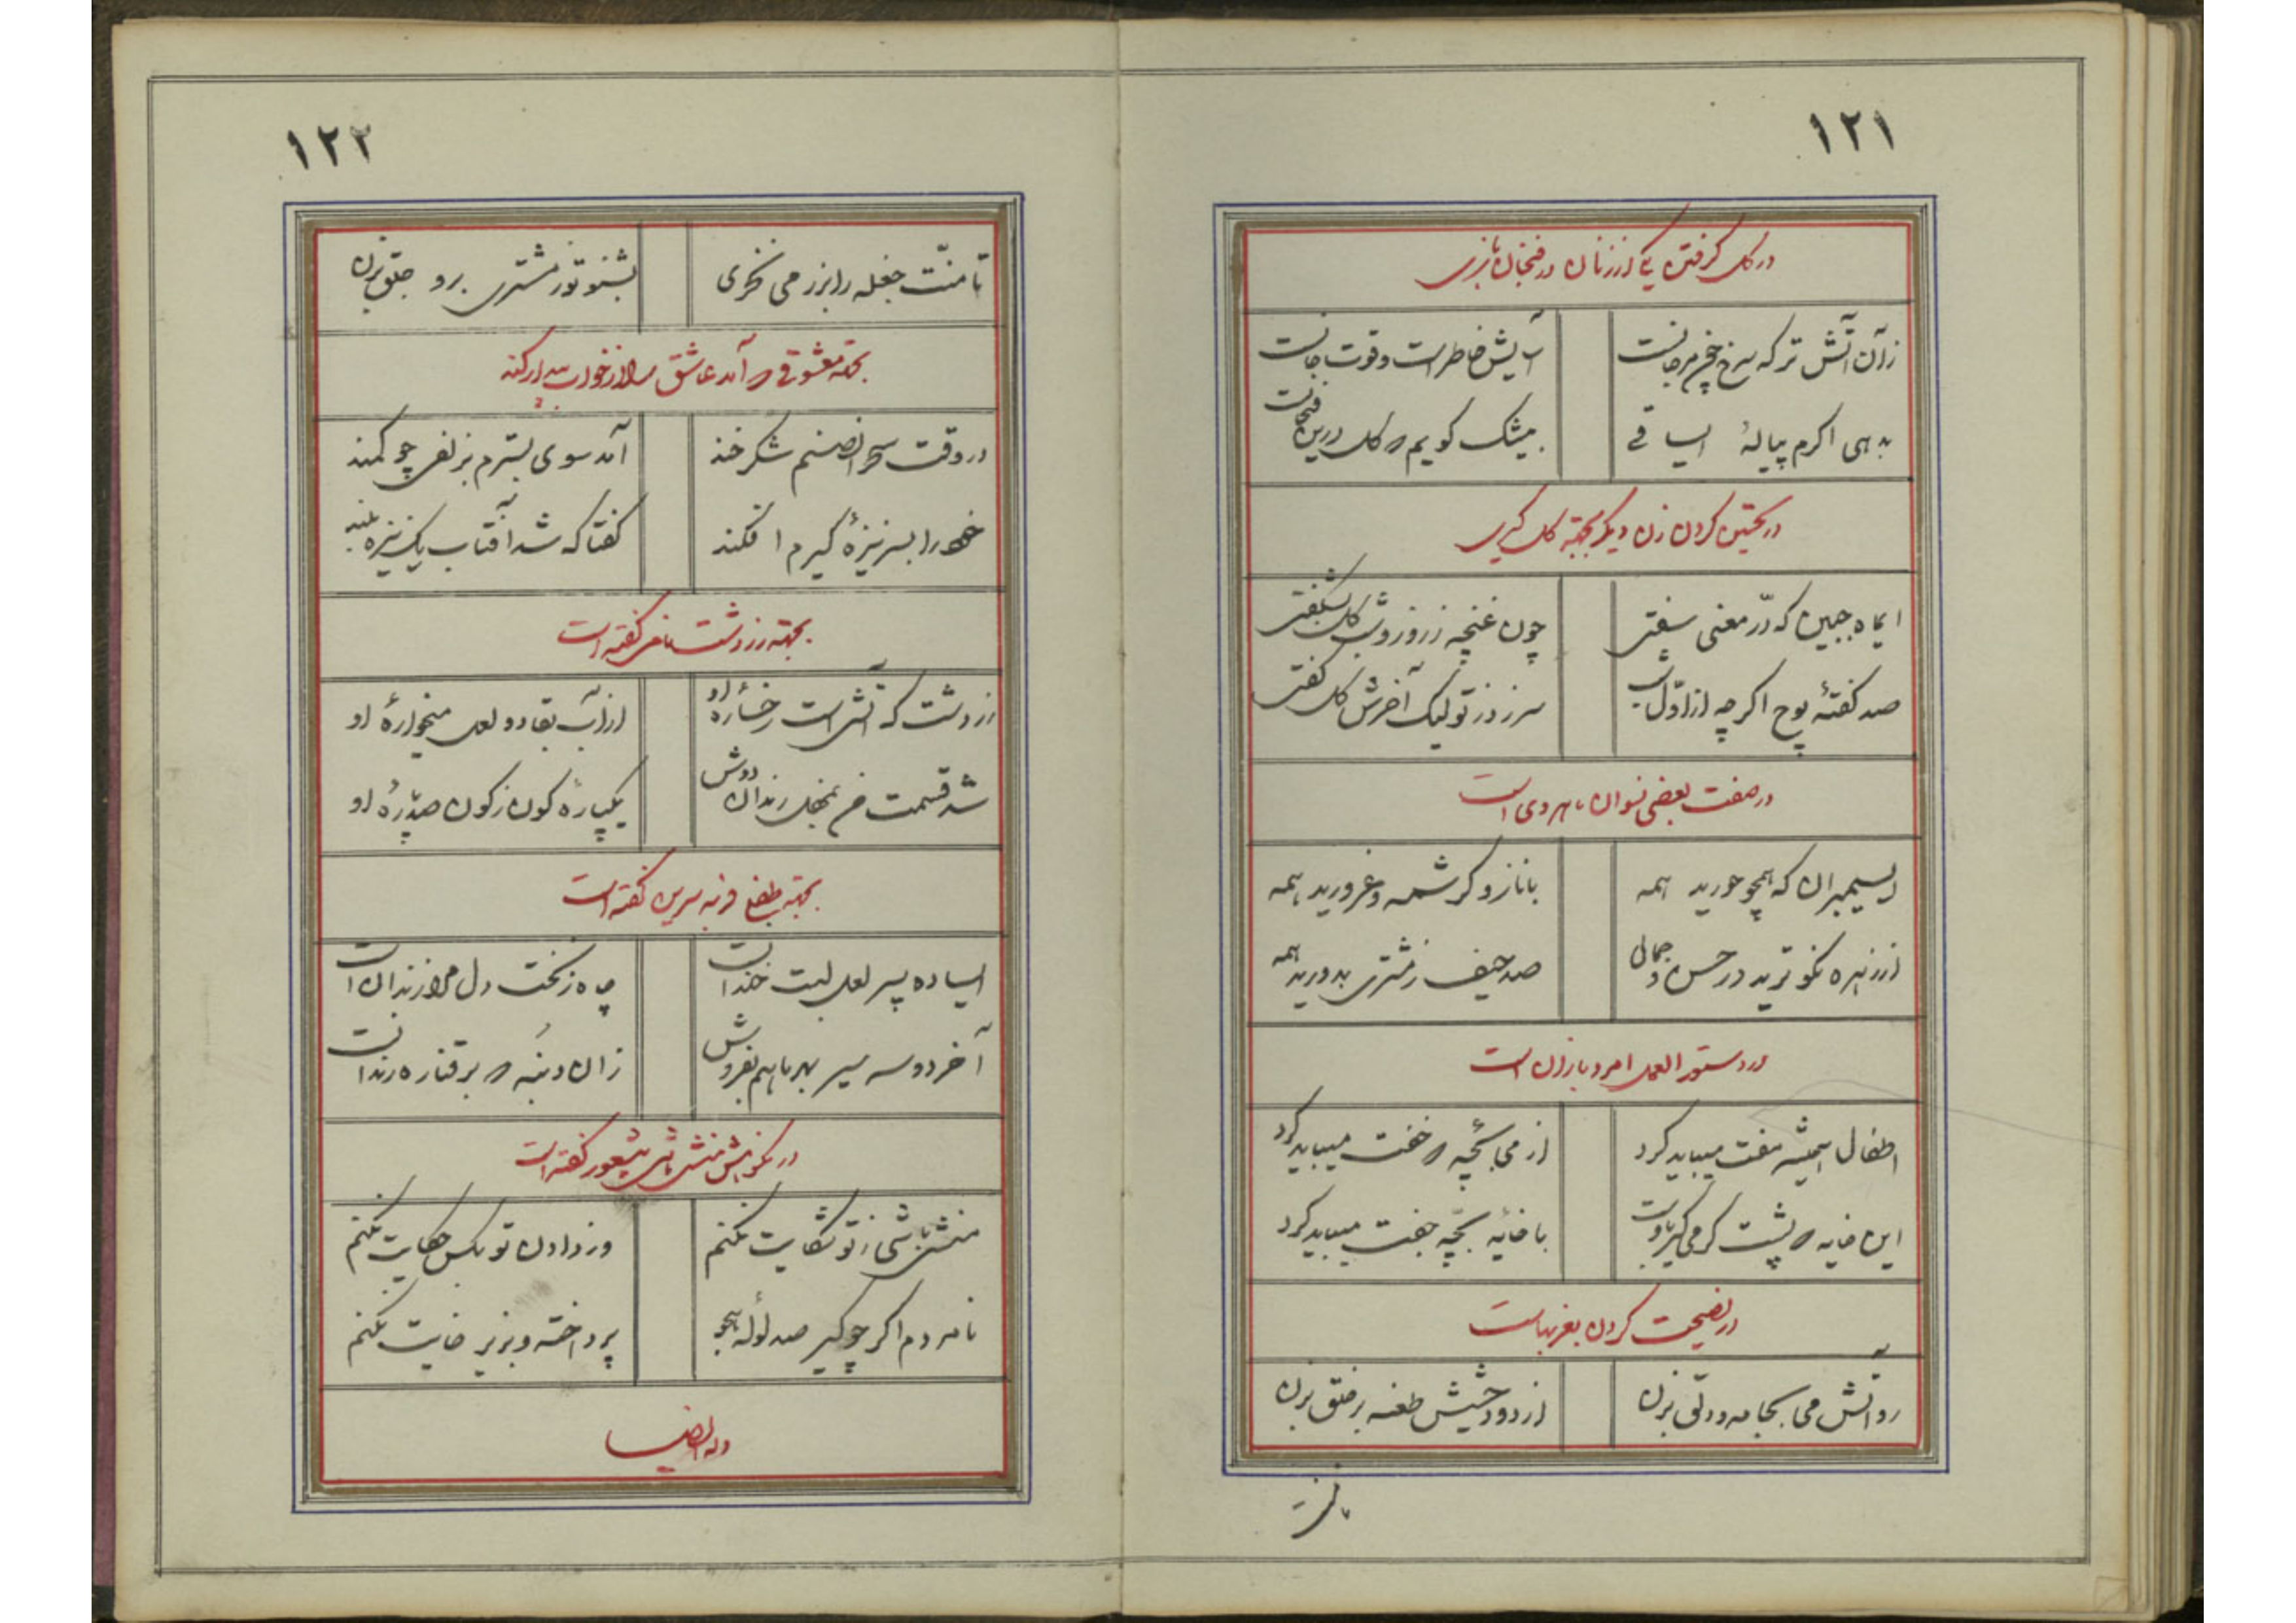 ۱۲۱
در گل گرفتن یکی از زنان در فنجان بازی
زآن آتش تر که سرخ چون مرجانست
آسایش خاطر است و قوت جانست
بدهی اگرم پیالهٔ ایساقی
بیشک گویم که گل درین فنجانست
در تحسین کردن زن دیگر بجهته گل گیری
ایماه جبین که درّ معنی سفتی
چون غنچه ز روز و شب گل بشگفتی
صد گفتهٔ پوچ اگر چه از اوّل شب
سر زد ز تو لیک آخرش گل گفتی
در صفت بعضی نسوان ماهروی است
ایسیمبران که همچو حورید همه
با ناز و کرشمه و غرورید همه
از زهره نکوترید در حسن و جمال
صد حیف ز مشتری بدورید همه
در دستورالعمل امرد بازان است
اطفال همیشه مفت میباید کرد
از می بچّه را خفت میباید کرد
این خایه که پشت گرمی کیر باوست
با خایهٔ بچّه جفت میباید کرد
در نصیحت کردن بغربهاست
رو آتش می بجامه و دلق بزن
از دود حشیش طعنه بر خلق بزن
تا منّت
۱۲۲
تا منّت جغله را بزر می نخری
بشنو تو ز مشتری برو جلق بزن
بجهته معشوقی که آمد عاشق را از خواب بیدار کند
در وقت سحر آن صنم شکر خند
آمد سوی بسترم بزلفی چو کمند
خود را بسر نیزهٔ کیرم افکند
گفتا که شد آفتاب یک نیزه بلند
بجهته زردشت نامی گفته است
زردشت که آتش است رخسارهٔ او
از آب بقا دو لعل میخوارهٔ او
شد قسمت من بمحفل رندان دوش
یکپارهٔ کون ز کون صد پارهٔ او
بجهته طفلی فربه سرین گفته است
ایساده پسر لعل لبت خندانست
چاه زنخت دل مرا زندان است
آخر دو سه سیر بهر ما هم بفروش
زان دنبه که بر قناره رندانست
در نکوهش منشی باشی بیشعور گفته است
منشی باشی ز تو شکایت نکنم
وز دادن تو بکس حکایت نکنم
نامردم اگر چو کیر صد لولهٔ هجو
پرداخته و بزیر خایت نکنم
وله ایضا